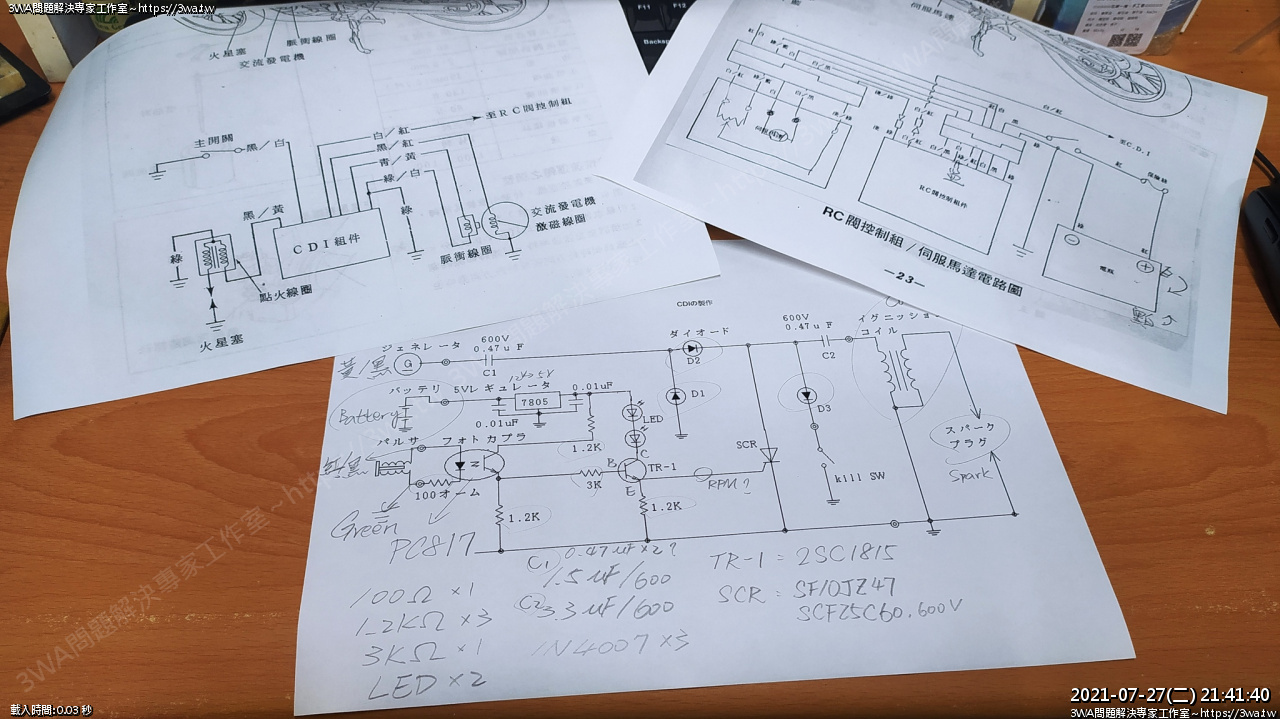 3WA問題解決專家工作室~https://3wa.tw
3WA問題解決專家工作室~https://3wa.tw
F11
F12
Backsp
火星塞
脈衝線圈
交流發電機
主開關
黑/白
白/紅
至RC閥控制組
黑/紅
青/黃
綠/白
黑/黃
綠
綠
CDI組件
脈衝線圈
交流發電機
激磁線圈
點火線圈
火星塞
伺服馬達
白/紅
綠/藍
白/黑
白/紅
綠/藍
白
白/黑
白/紅
白/紅
至C.D.I
黑
綠
紅
保險絲
RC閥控制組件
綠
紅
電瓶
RC閥控制組/伺服馬達電路圖
—23—
CDIの製作
ジェネレータ
600V
0.47uF
C1
G
黃/黑
ダイオード
D2
D1
600V
0.47uF
C2
イグニッション
コイル
バッテリ
5Vレギュレータ
12V→5V
7805
0.01uF
0.01uF
Battery
LED
D3
パルサ
フォトカプラ
1.2K
SCR
スパーク
プラグ
Spark
紅/黑
B
C
TR-1
E
3K
RPM?
kill SW
100オーム
1.2K
1.2K
Green
PC817
100Ω×1
1.2KΩ×3
3KΩ×1
LED×2
C1 0.47uF×2?
1.5uF/600
C2 3.3uF/600
1N4007×3
TR-1=2SC1815
SCR: SF10JZ47
SCF25C60.600V
2021-07-27(二) 21:41:40
載入時間:0.03 秒
3WA問題解決專家工作室~https://3wa.tw